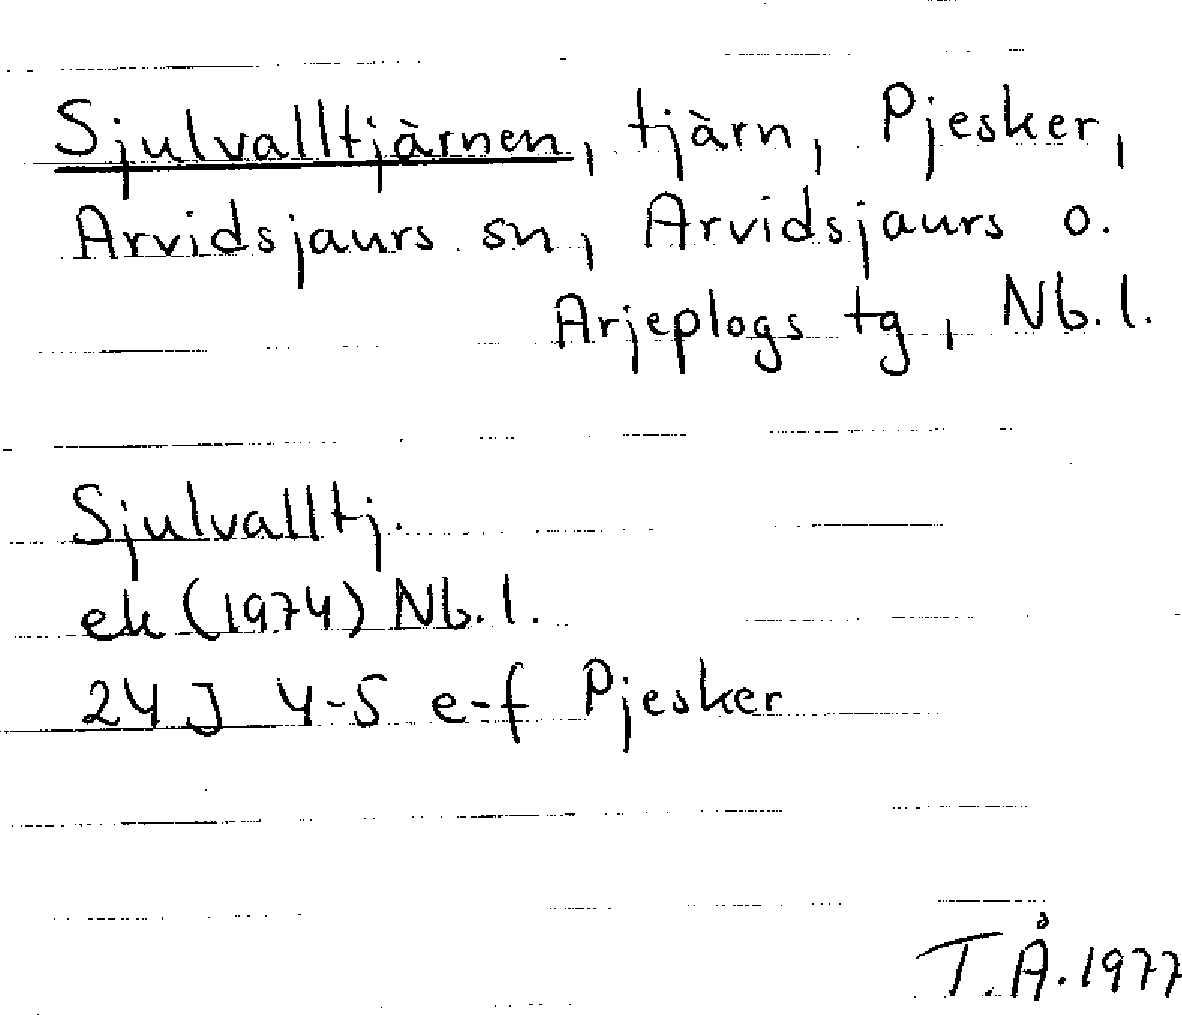 Sjulvalltjärnen, tjärn, Pjesker,
Arvidsjaurs sn, Arvidsjaurs o.
Arjeplogs tg, Nb.l.
Sjulvalltj.
ek (1974) Nb.l.
24 J 4-5 e-f Pjesker
T.Å. 1977